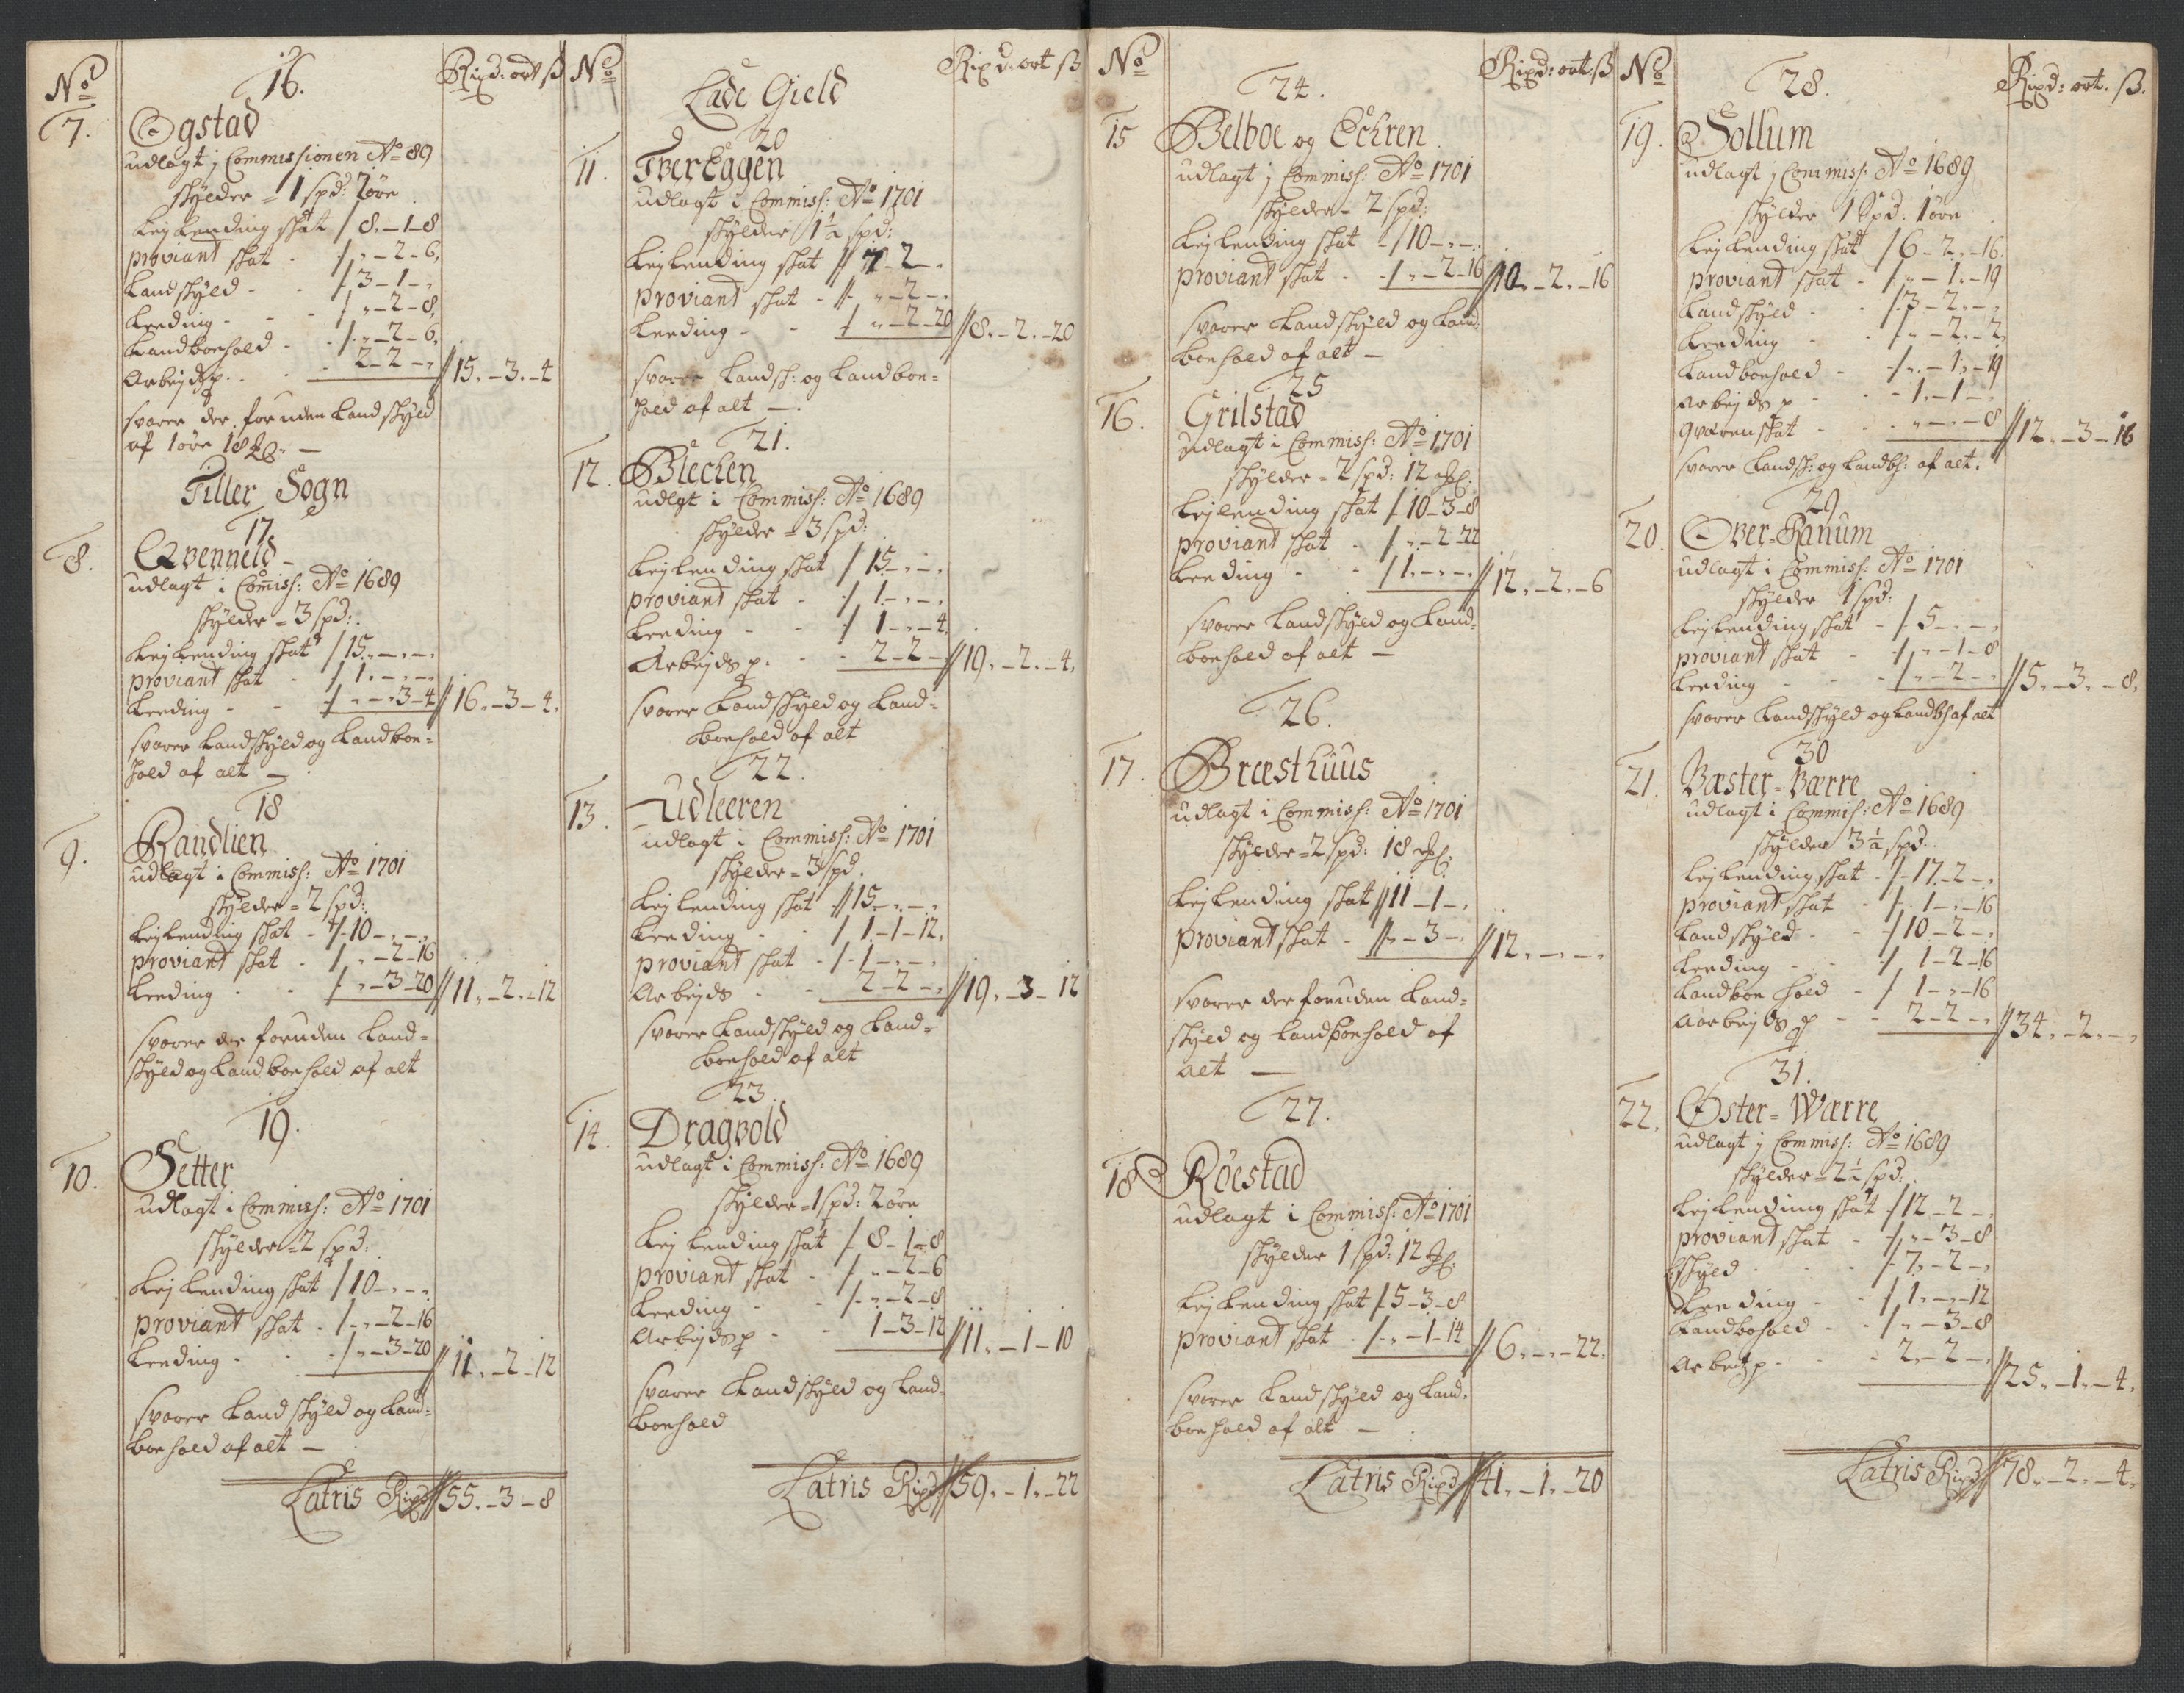 No
16.
Rixd: ort ß
7.
Ogstad
udlagt j Commissionen Ao 89
skylder = 1 spd: 2 øre
Leylending skat / 8. - 1 - 8
proviant skat - / „ - 2 - 6,
Landskyld - - / 3 - 1 - „
Leeding - - - / „ - 2 - 8,
Landboehold - / „ - 2 - 6,
Arbejds p. - - 2 - 2 - „ // 15. - 3. - 4
svarer der foruden Landskyld
af 1 øre 18
Tiller Sogn
17
8.
Qvenneld -
udlagt i Comiss: Ao 1689
skylder = 3 spd:
Leylending skat / 15. „ - „ - „
proviant skat - / 1. - „ - „
Leeding - - / „ - „ 3 - 4 // 16. - 3 - 4.
svarer Landskyld og Landboe=
hold af alt -
18
9.
Randlien
udlagt i Commiss: Ao 1701
skylder = 2 spd:
Leylending skat - / 10 - „ - „
proviant skat - / „ - 2 - 16
Leeding - - / „ - 3 - 20 // 11. - 2. - 12
svarer der foruden Land=
skyld og Landboehold af alt
19.
10.
Setter
udlagt i Commiss: Ao 1701
skylder = 2 spd:
Leylending skat / 10 - „ - „
proviant skat - / „ - 2 - 16
Leeding - - / „ - 3 - 20 // 11. - 2 - 12
svarer Landskyld og Land=
boehold af alt -
Latris Rixd // 55. - 3 - 8
No
Lade Gield
Rixd: ort ß
20
11.
TverEggen
udlagt i Commiss: Ao 1701
skylder 1½ spd:
Leylending skat // 7 - 2 - „
proviant skat - // „ - 2 - „
Leeding - - / „ - 2 - 20 // 8. - 2. - 20
svarer Landsk: og Landboe=
hold af alt -.
21.
12.
Blecken
udlagt i Commiss: Ao 1689
skylder = 3 spd:
Leylending skat / 15 - „ - „
proviant skat - / 1 - „ - „
Leeding - - / 1 - „ - 4.
Arbejds p. - - 2 - 2 - // 19. - 2. - 4,
svarer Landskyld og Land=
boehold af alt
22.
13.
Udleeren
udlagt i Commiss: Ao 1701
skylder = 3 spd.
Leylending skat // 15 - „ - „
Leeding - - / 1 - 1 - 12,
proviant skat - / 1 - „ - „
Arbejds - - 2 - 2 - „ // 19. - 3 - 12
svarer Landskyld og Land=
boehold af alt
23.
14.
Dragvold
udlagt i Commiss: Ao 1689
skylder = 1 spd: 2 øre
Leylending skat / 8 - 1 - 8
proviant skat - / „ - 2 - 6
Leeding - - / „ - 2 - 8
Arbejds p - - 1 - 3 - 12 // 11. - 1 - 10
svarer Landskyld og Land=
boehold
Latris Rixd // 59. - 1. - 22
No
24.
Rixd: ort. ß
15
Belboe og Eckren
udlagt j Commiss: Ao 1701
skylder = 2 spd:
Leylending skat - / 10 - „ - „
proviant skat - - / „ - 2 - 16 // 10. - 2. - 16
svarer Landskyld og Land=
boehold af alt -
25
16.
Grilstad
udlagt i Commiss: Ao 1701
skylder = 2 spd: 12
Leylending skat / 10 - 3 - 8
proviant skat - / „ - 2 - 22
Leeding - - / 1. - „ - „ // 12. - 2. - 6
svarer Landskyld og Land=
boehold af alt -
26.
17.
Bræsthuus
udlagt i Commiss: Ao 1701
skylder = 2 spd: 18
Leylending skat // 11 - 1 - „
proviant skat - // „ - 3 - „ // 12. - „ - „
svarer der foruden Land=
skyld og Landboehold af
alt -
27.
18
Röestad
udlagt i Commiss: Ao 1701
skylder 1 spd: 12
Leylending skat / 5 - 3 - 8
proviant skat - / „ - 1 - 14 // 6. - „ - 22.
svarer Landskyld og Land=
boehold af alt -
Latris Rixd // 41. - 1. - 20
No
28.
Rixd: ort. ß.
19.
Sollum
udlagt j Commiss: Ao 1689
skylder 1 spd: 1 øre
Leylending skat / 6 - 2 „ - 16.
proviant skat - / „ - 1. - 19
Landskyld - - / 3 - 2 - „
Leeding - - / „ - 2. - 2,
Landboehold - / „ - 1 „ - 19
Arbejds p - - 1. - 1 - „
qværnskat - - „ - „ - 8 // 12. - 3 - 16
svarer Landsk: og Landbh: af alt.
29
20.
Over=Ranum
udlagt i Commiss: Ao 1701
skylder 1 spd:
Leylending skat - / 5 - „ - „
proviant skat - / „ - 1 - 8
Leeding - - / „ - 2 - „ // 5. - 3. - 8,
svarer Landskyld og Landbh af alt
30
21.
Væster=Værre
udlagt i Commiss: Ao 1689
skylder 3½ spd:
Leylending skat - / 17 - 2 - „
proviant skat - / 1 - „ - 16
Landskyld - - / 10 - 2 - „
Leeding - - / 1 - 2 - 16
Landboehold - / 1 - „ - 16
Aarbejds p - - 2 - 2 - „ // 34. - 2. - „
31.
22.
Öster=Wærre
udlagt j Commiss: Ao 1689
skylder = 2½ spd:
Leylending skat / 12 - 2 - „
proviant skat - / „ - 3 - 8
Lskyld - - / 7. - 2 - „
Leeding - - / 1. - „ - 12
Landbohold - / „ - 3 - 8
Arbeitz p - - 2. - 2 - „ // 25. - 1. - 4.
Latris Rixd // 78. - 2. - 4.